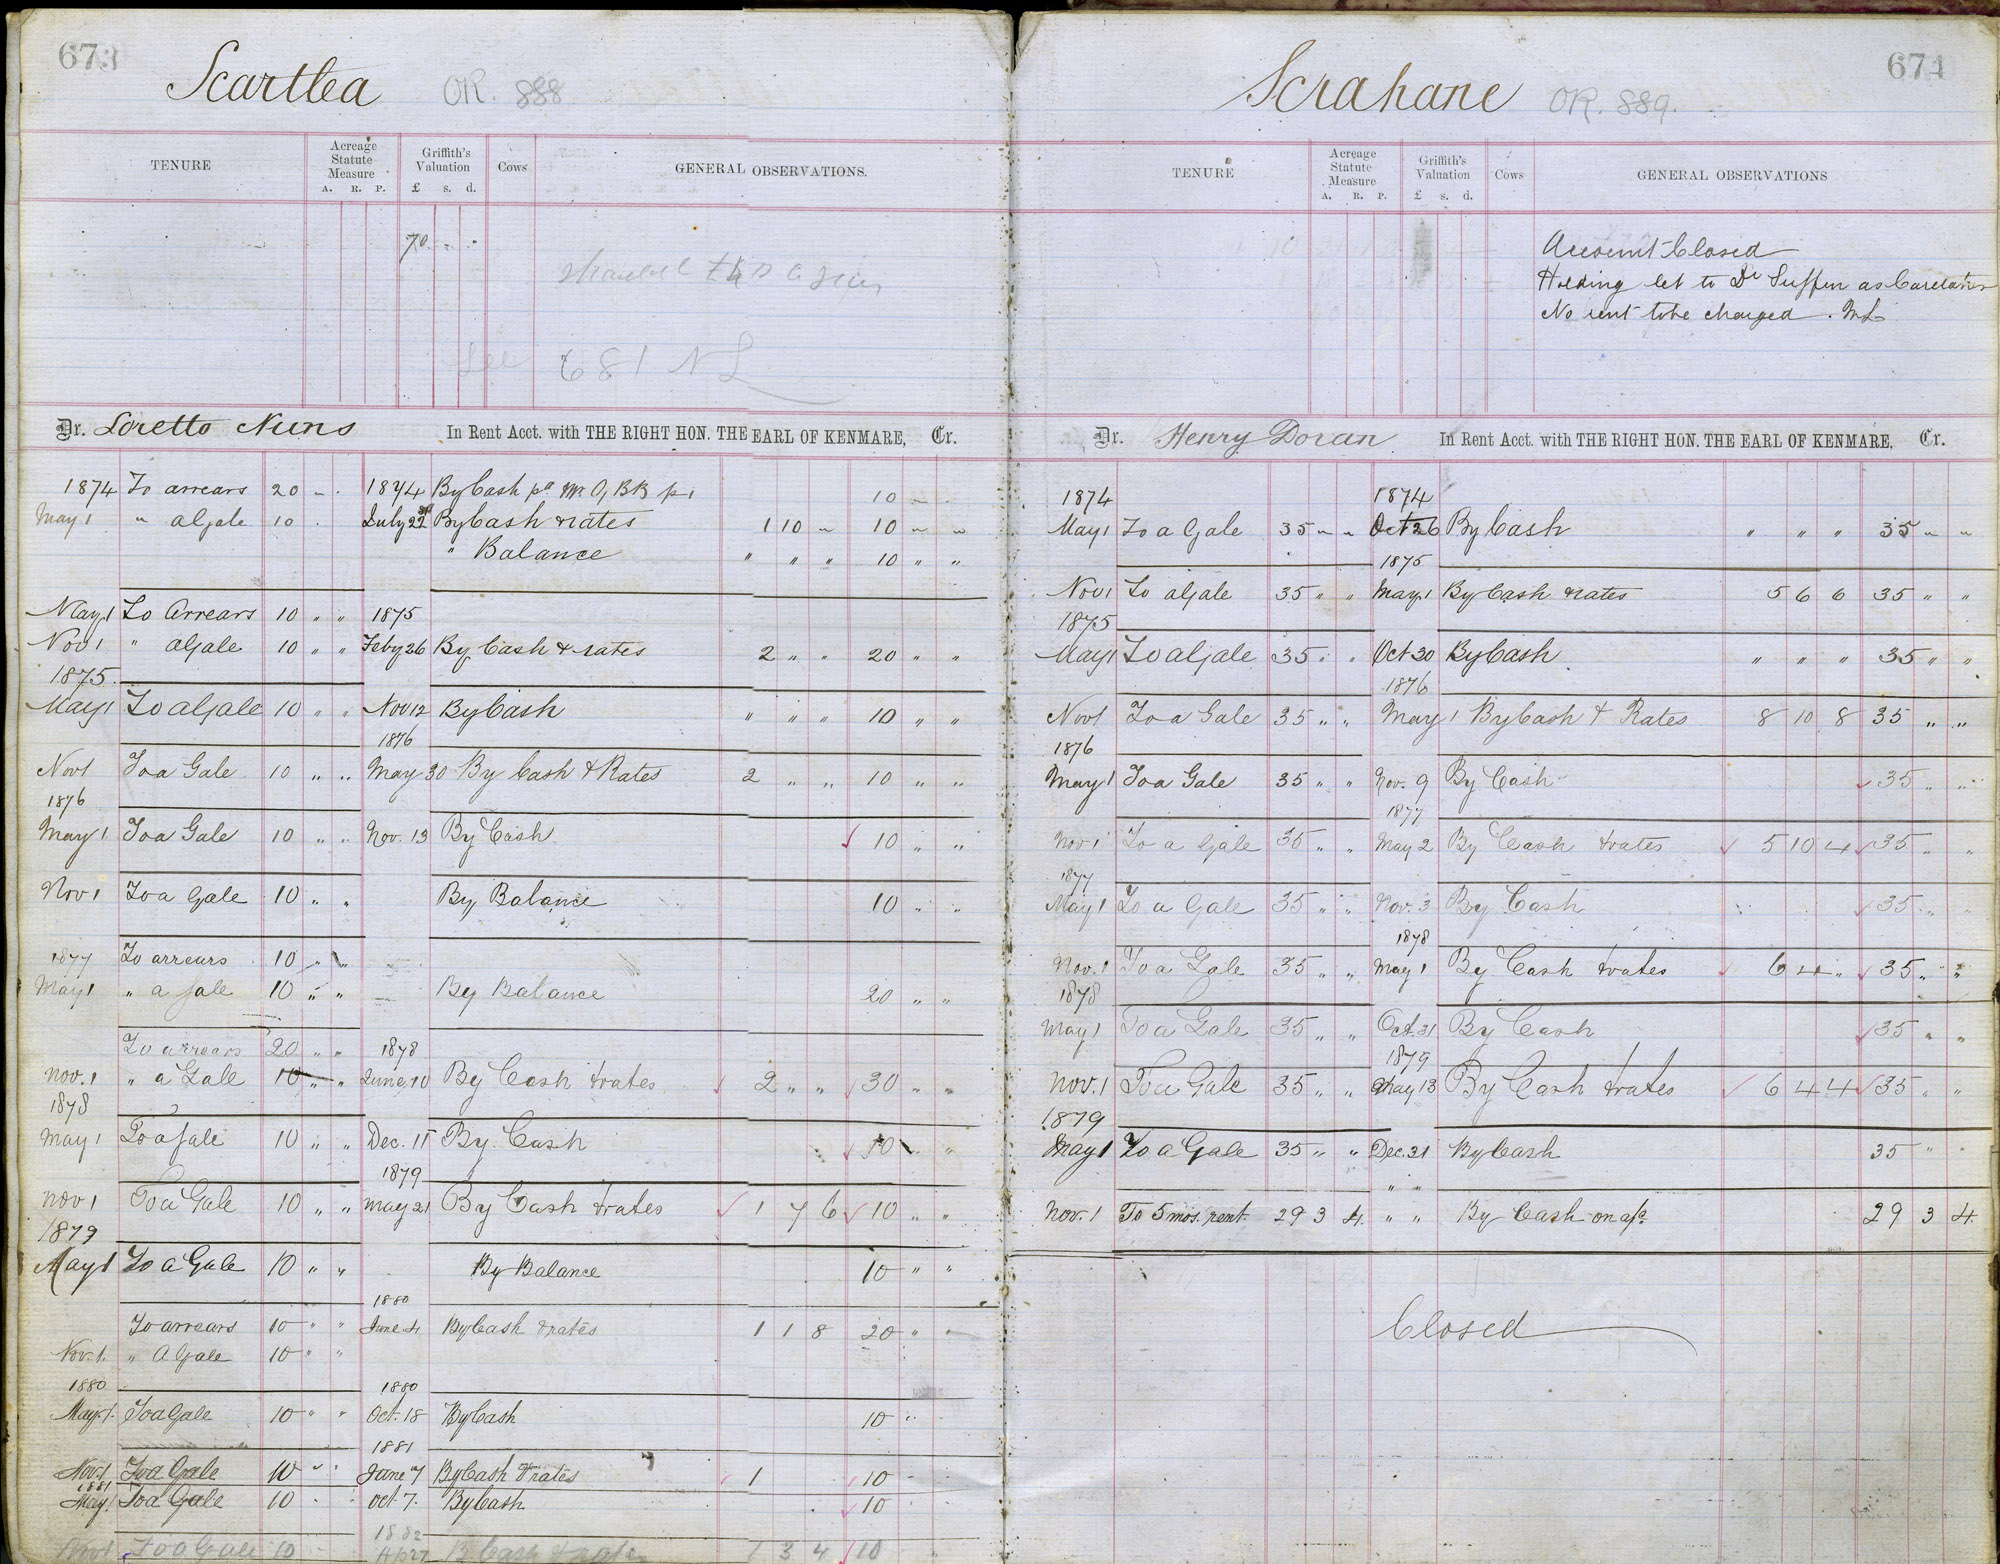 673
Scartlea OR. 888
TENURE
Acreage Statute Measure
A. R. P.
Griffith's Valuation
£ s. d.
Cows
GENERAL OBSERVATIONS.
70 " "
See 681 NL
Dr. Loretto Nuns In Rent Acct. with THE RIGHT HON. THE EARL OF KENMARE, Cr.
1874 To arrears 20 " " 1874 By Cash 10 " "
May 1 " a Gale 10 July 22 By Cash & rates 1 10 " 10 " "
" Balance " " " 10 " "
May 1 To Arrears 10 " " 1875
Nov 1 " a Gale 10 " " Feby 26 By Cash & rates 2 " " 20 " "
1875
May 1 To a Gale 10 " " Nov 12 By Cash " " " 10 " "
1876
Nov 1 To a Gale 10 " " May 30 By Cash & Rates 2 " " 10 " "
1876
May 1 To a Gale 10 " " Nov. 13 By Cash 10 " "
Nov 1 To a Gale 10 " " By Balance 10 " "
1877 To arrears 10 " "
May 1 " a Gale 10 " " By Balance 20 " "
To arrears 20 " " 1878
Nov. 1 " a Gale 10 " " June 10 By Cash & rates 2 " " 30 " "
1878
May 1 To a Gale 10 " " Dec. 11 By Cash 10 " "
1879
Nov 1 To a Gale 10 " " May 21 By Cash & rates 1 7 6 10 " "
1879
May 1 To a Gale 10 " " By Balance 10 " "
1880
To arrears 10 " " June 4 By Cash & rates 1 1 8 20 " "
Nov. 1. " A Gale 10 " "
1880 1880
May 1. To a Gale 10 " " Oct. 18 By Cash 10 "
1881
Nov. 1 To a Gale 10 " " June 7 By Cash & rates 1 10
1881
May 1 To a Gale 10 Oct 7. By Cash 10
1882
Nov 1 To a Gale 10 Ap 27 By Cash & rates 1 3 4 10
674
Scrahane OR. 889.
TENURE
Acreage Statute Measure
A. R. P.
Griffith's Valuation
£ s. d.
Cows
GENERAL OBSERVATIONS
Account Closed
Holding let to Dr as Caretaker
No rent to be charged. ML
Dr. Henry Doran In Rent Acct. with THE RIGHT HON. THE EARL OF KENMARE, Cr.
1874 1874
May 1 To a Gale 35 " " Oct 26 By Cash " " " 35 " "
1875
Nov 1 To a Gale 35 " " May 1 By Cash & rates 5 6 6 35 " "
1875
May 1 To a Gale 35 " " Oct 30 By Cash " " " 35 " "
1876
Nov 1 To a Gale 35 " " May 1 By Cash & Rates 8 10 8 35 " "
1876
May 1 To a Gale 35 " " Nov. 9 By Cash 35 " "
1877
Nov 1 To a Gale 35 " " May 2 By Cash & rates 5 10 4 35 " "
1877
May 1 To a Gale 35 " " Nov. 3 By Cash 35 " "
1878
Nov. 1 To a Gale 35 " " May 1 By Cash & rates 6 4 " 35 " "
1878
May 1 To a Gale 35 " " Oct. 31 By Cash 35 " "
1879
Nov. 1 To a Gale 35 " " May 13 By Cash & rates 6 4 4 35 " "
1879
May 1 To a Gale 35 " " Dec. 31 By Cash 35 " "
" "
Nov. 1 To 5 mos. rent 29 3 4 " " By Cash on a/c 29 3 4
Closed